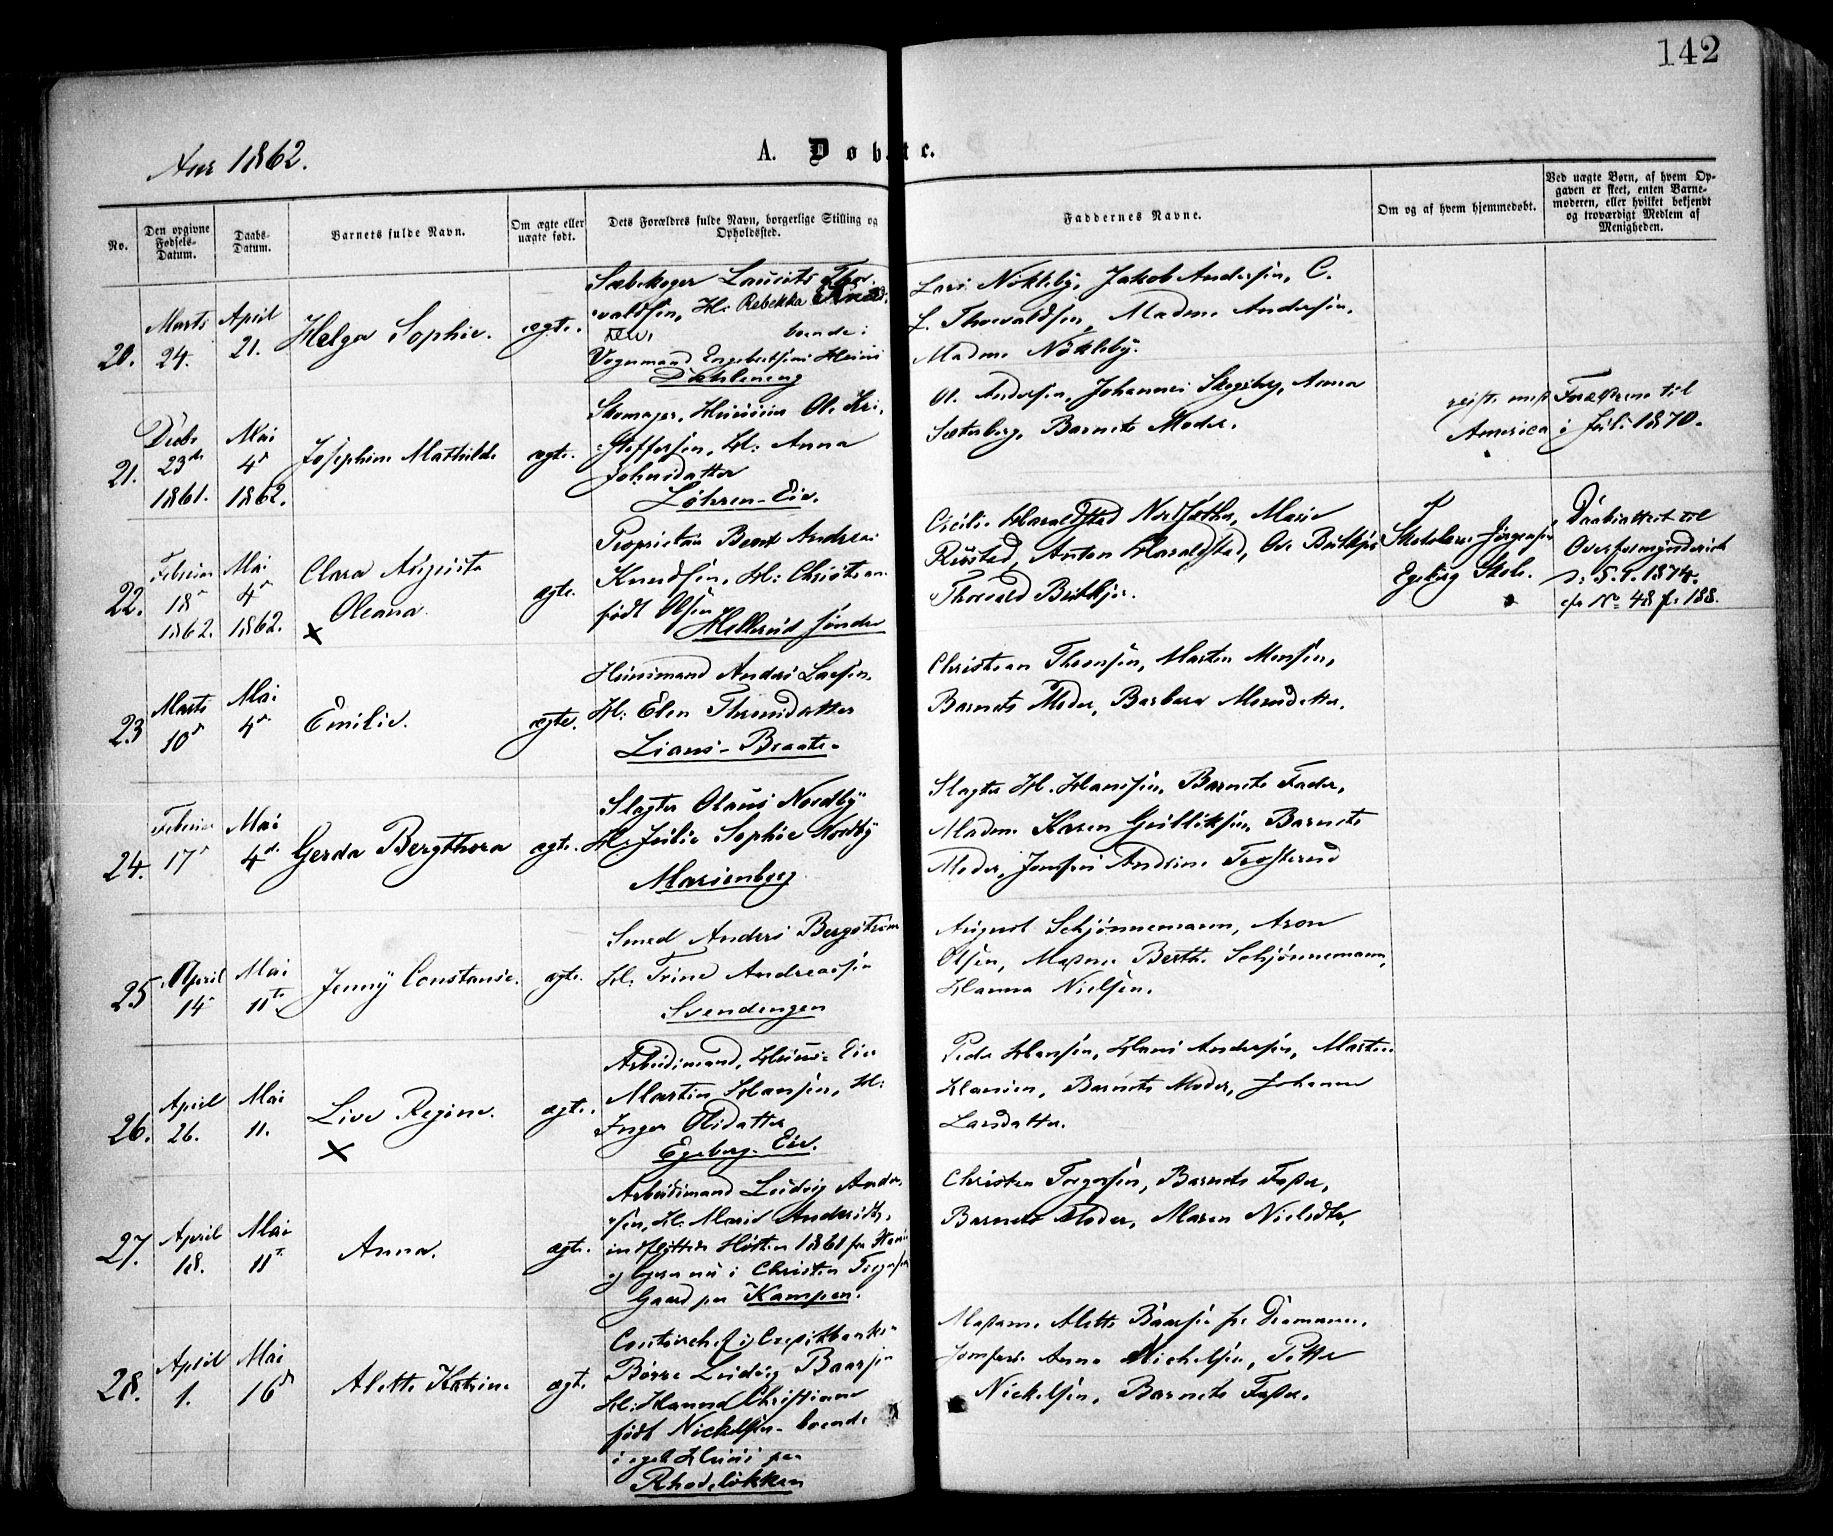 142
Aar 1862.
A. Døbte.
No.
Den opgivne Fødsels-Datum.
Daabs-Datum.
Barnets fulde Navn.
Om ægte eller uægte født.
Dets Forældres fulde Navn, borgerlige Stilling og Opholdssted.
Faddernes Navne.
Om og af hvem hjemmedøbt.
Ved uægte Børn, af hvem Opgaven er skeet, enten Barnemoderen, eller hvilket bekjendt og troværdigt Medlem af Menigheden.
20.
Marts 24.
April 21.
Helga Sophie.
ægte.
Sæbekoger Laurits Thor-
valdsen, H: Rebekka
boende i
Vognmand Engebretsens Huus
Dæhleneng
Lars Nökleby, Jakob Andersen, C.
L. Thorvaldsen, Madme Andersen,
Madme Nökleby.
21.
Decbr 23de 1861.
Mai 4de 1862.
Josephine Mathilde
ægte.
Skomager, Huuseier Ole Kri-
stoffersen, H: Anna
Johnsdatter
Løhren-Eie.
O. Andersen, Johannes Skogsby, Anna
Sæterberg, Barnets Moder.
reist med Forældrene til
America i Juli 1870.
22.
Februar 18de 1862.
Mai 4de 1862.
Clara Augusta
Oleana.
x
ægte.
Proprietær Bent Andreas
Knudsen, H: Christiane
født Olsen
Hellerud søndre
Cicilie Haraldstad Nordsæther, Marie
Rustad, Anton Haraldstad, Ove Butkjær
Thorvald Butkjær.
af
Skolelærer Jörgensen
Egeberg Skole.
Daabsattest til
Overformynderiet
d: 5.1.1874.
cfr No 48 f. 188.
23
Marts 10de
Mai 4de
Emilie.
ægte.
Huusmand Anders Larsen.
H: Elen Thomsdatter
Lians-Braate.
Christian Thomsen, Marten Monsen,
Barnets Moder, Barbara Monsdatter.
24.
Februar 17de
Mai 4de
Gerda Bergthora
ægte.
Slagter Olaus Nordby
H: Julie Sophie Nordby
Marienberg
Slagter H. Hansen, Barnets Fader,
Madme Karen Gulliksen, Barnets
Moder, Jomfru Andrine Trosterud
25
April 14de
Mai 11te
Jenny Constanse.
ægte.
Smed Anders Bergström
H: Trine Andreassen
Svendengen
August Schjönnemann, Aron
Olsen, Madme Berthe Schjönnemann,
Hanna Nielsen.
26.
April 26.
Mai 11.
Live Regine.
x
ægte.
Arbeidsmand, Huus-Eier
Martin Hansen, H:
Inger Olsdatter
Egeberg-Eie.
Peder Hansen, Hans Andersen, Marten
Hansen, Barnets Moder, Johanne
Larsdatter.
27.
April 18.
Mai 11te
Anna.
ægte.
Arbeidsmand Ludvig Ander-
sen, H: Marie Andersdtr,
indflyttede Høsten 1861 fra
og logerer nu i Christen Torgersens
Gaard paa Kampen.
Christen Torgersen, Barnets Fader,
Barnets Moder, Maren Nielsdtr.
28.
April 1.
Mai 16de
Alette Katrine
ægte
Contoirchef i Creditbanken
Børre Ludvig Baarsen
H: Hanna Christiane
født Nickelsen - boende
i eget Huus paa
Rhodeløkken
Madame Alette Baarsen fra Drammen.
Jomfru Anna Nickelsen, Petter
Nickelsen, Barnets Fader.